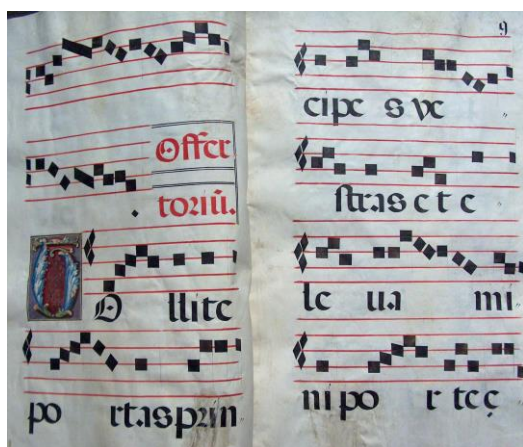 Offer
toriū.
TO llite
po rtas prin
9
cipe s ve
stras e t e
le ua mi
ni po r te ę